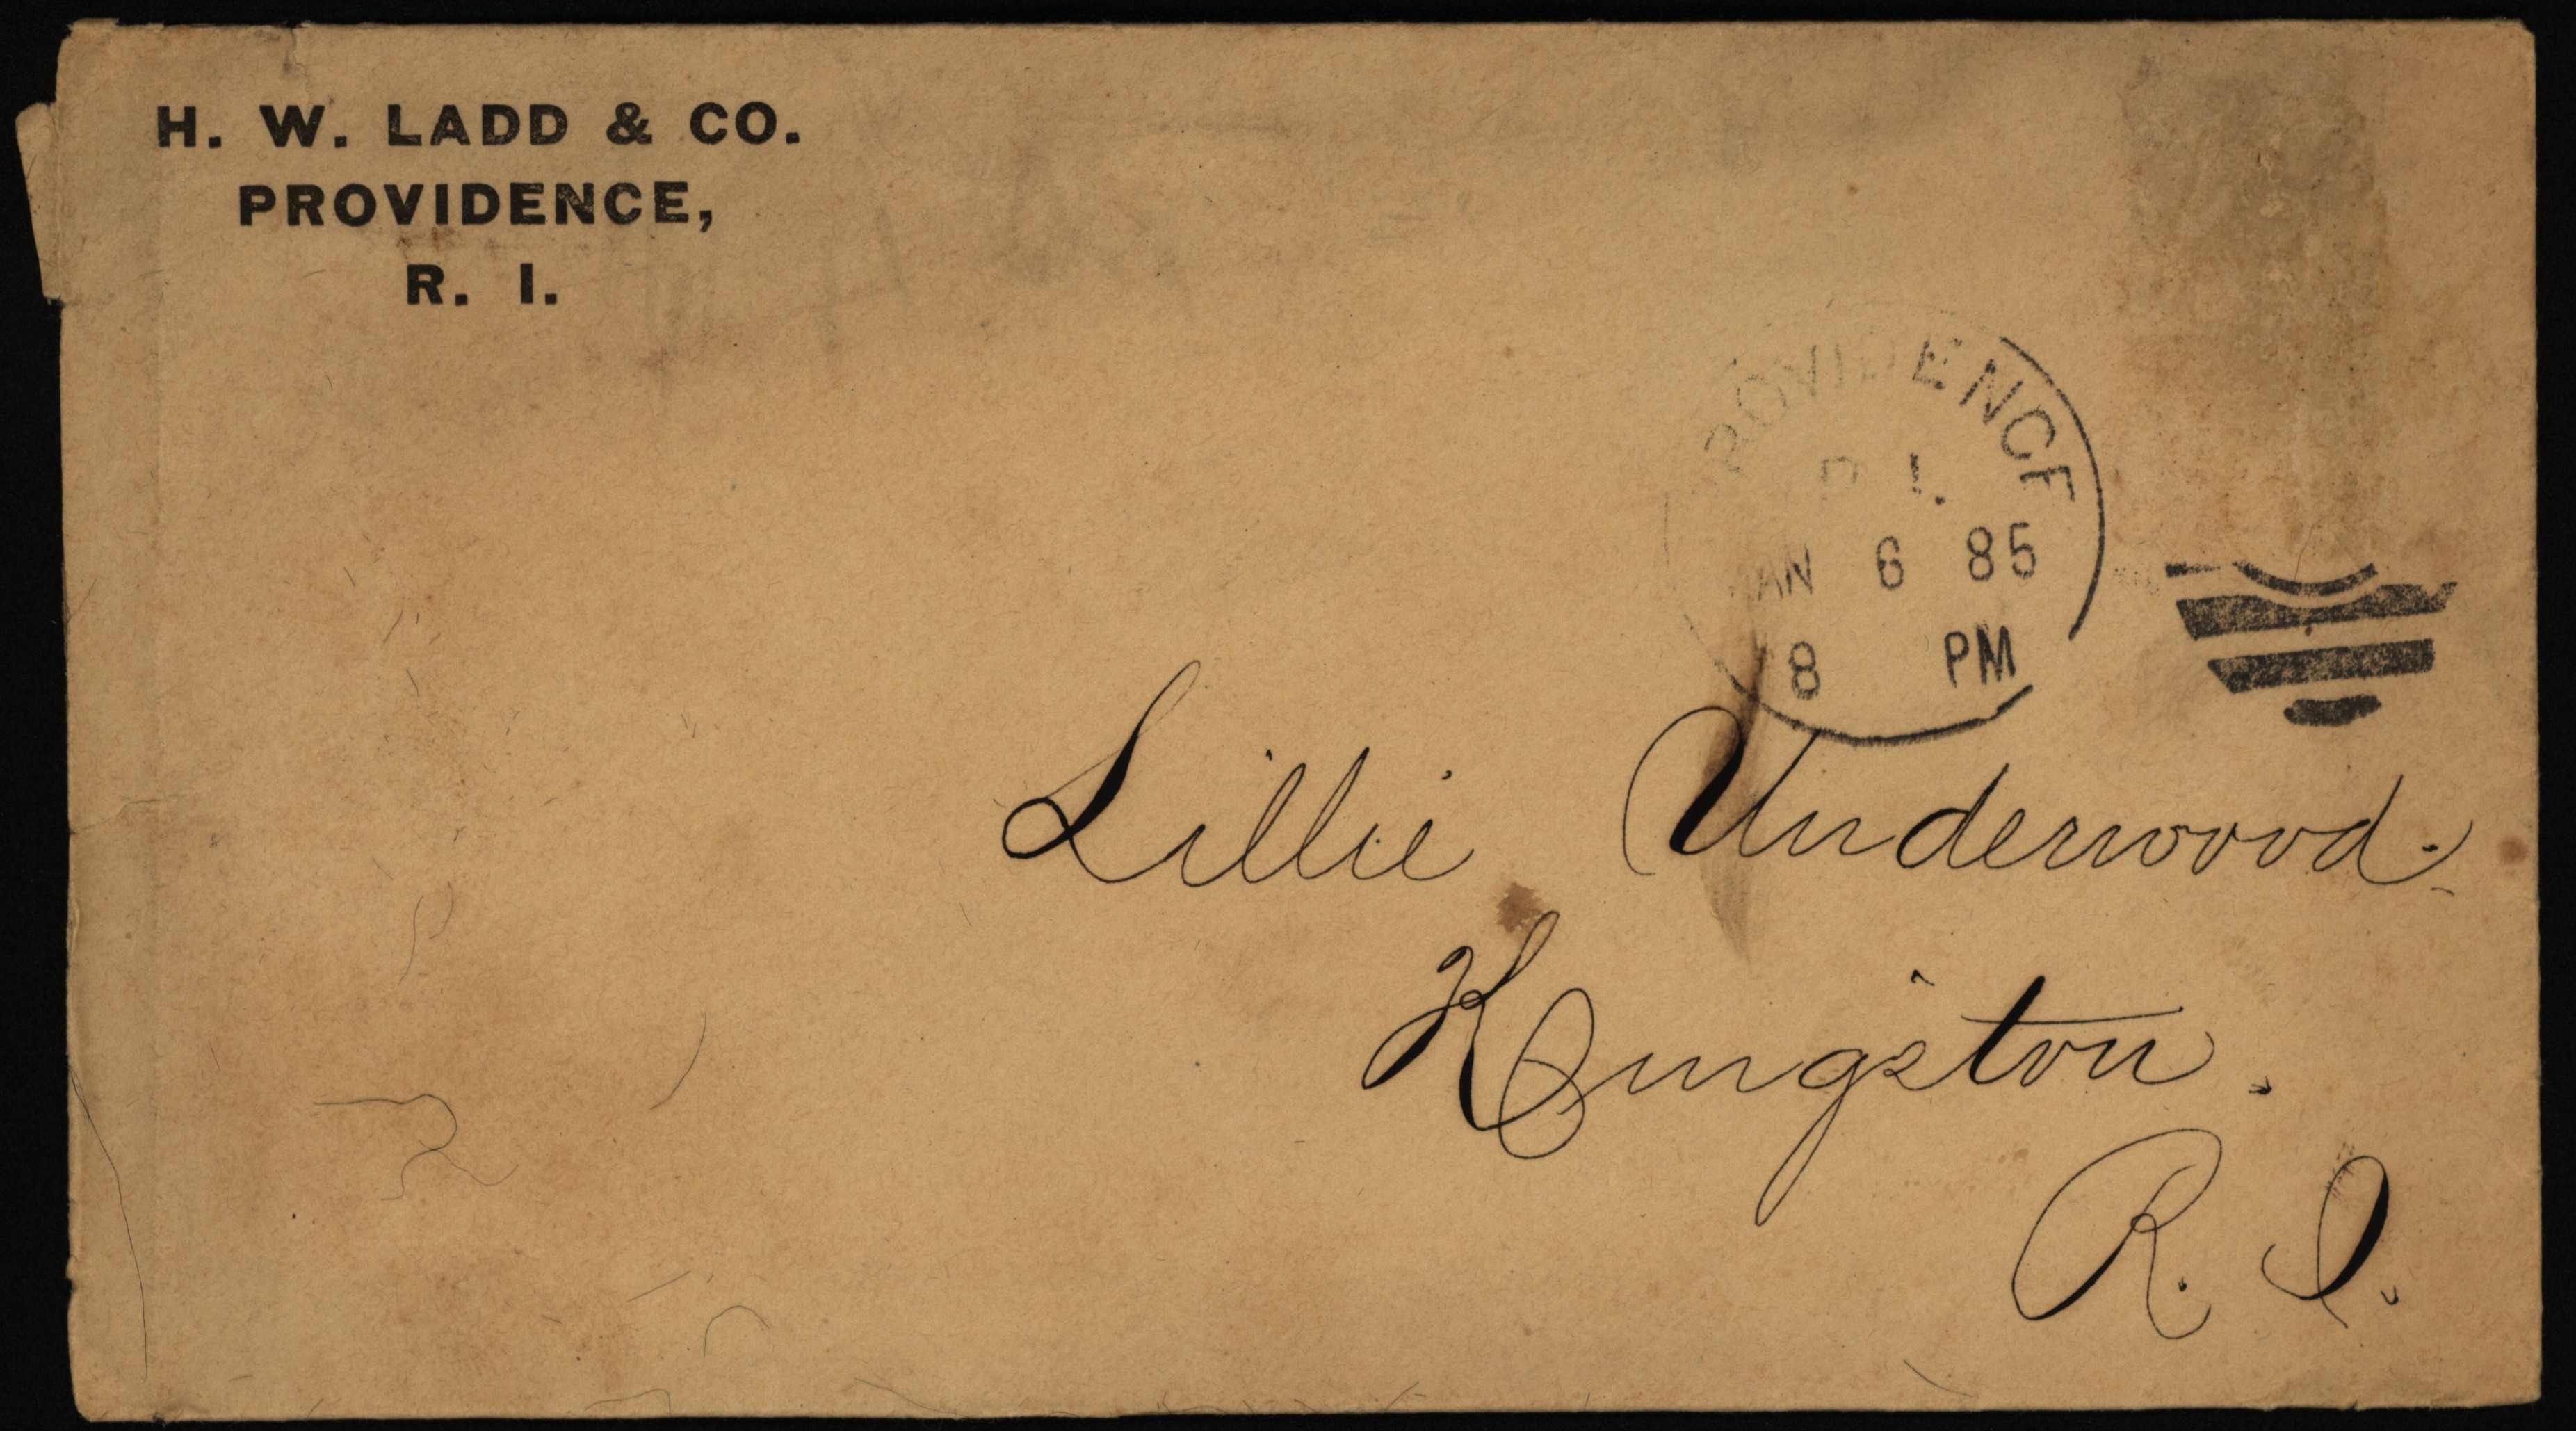 H. W. LADD & CO.
PROVIDENCE,
R. I.
PROVIDENCE
R. I.
JAN 6 85
8 PM
Lillie Underwood.
Kingston.
R. I.